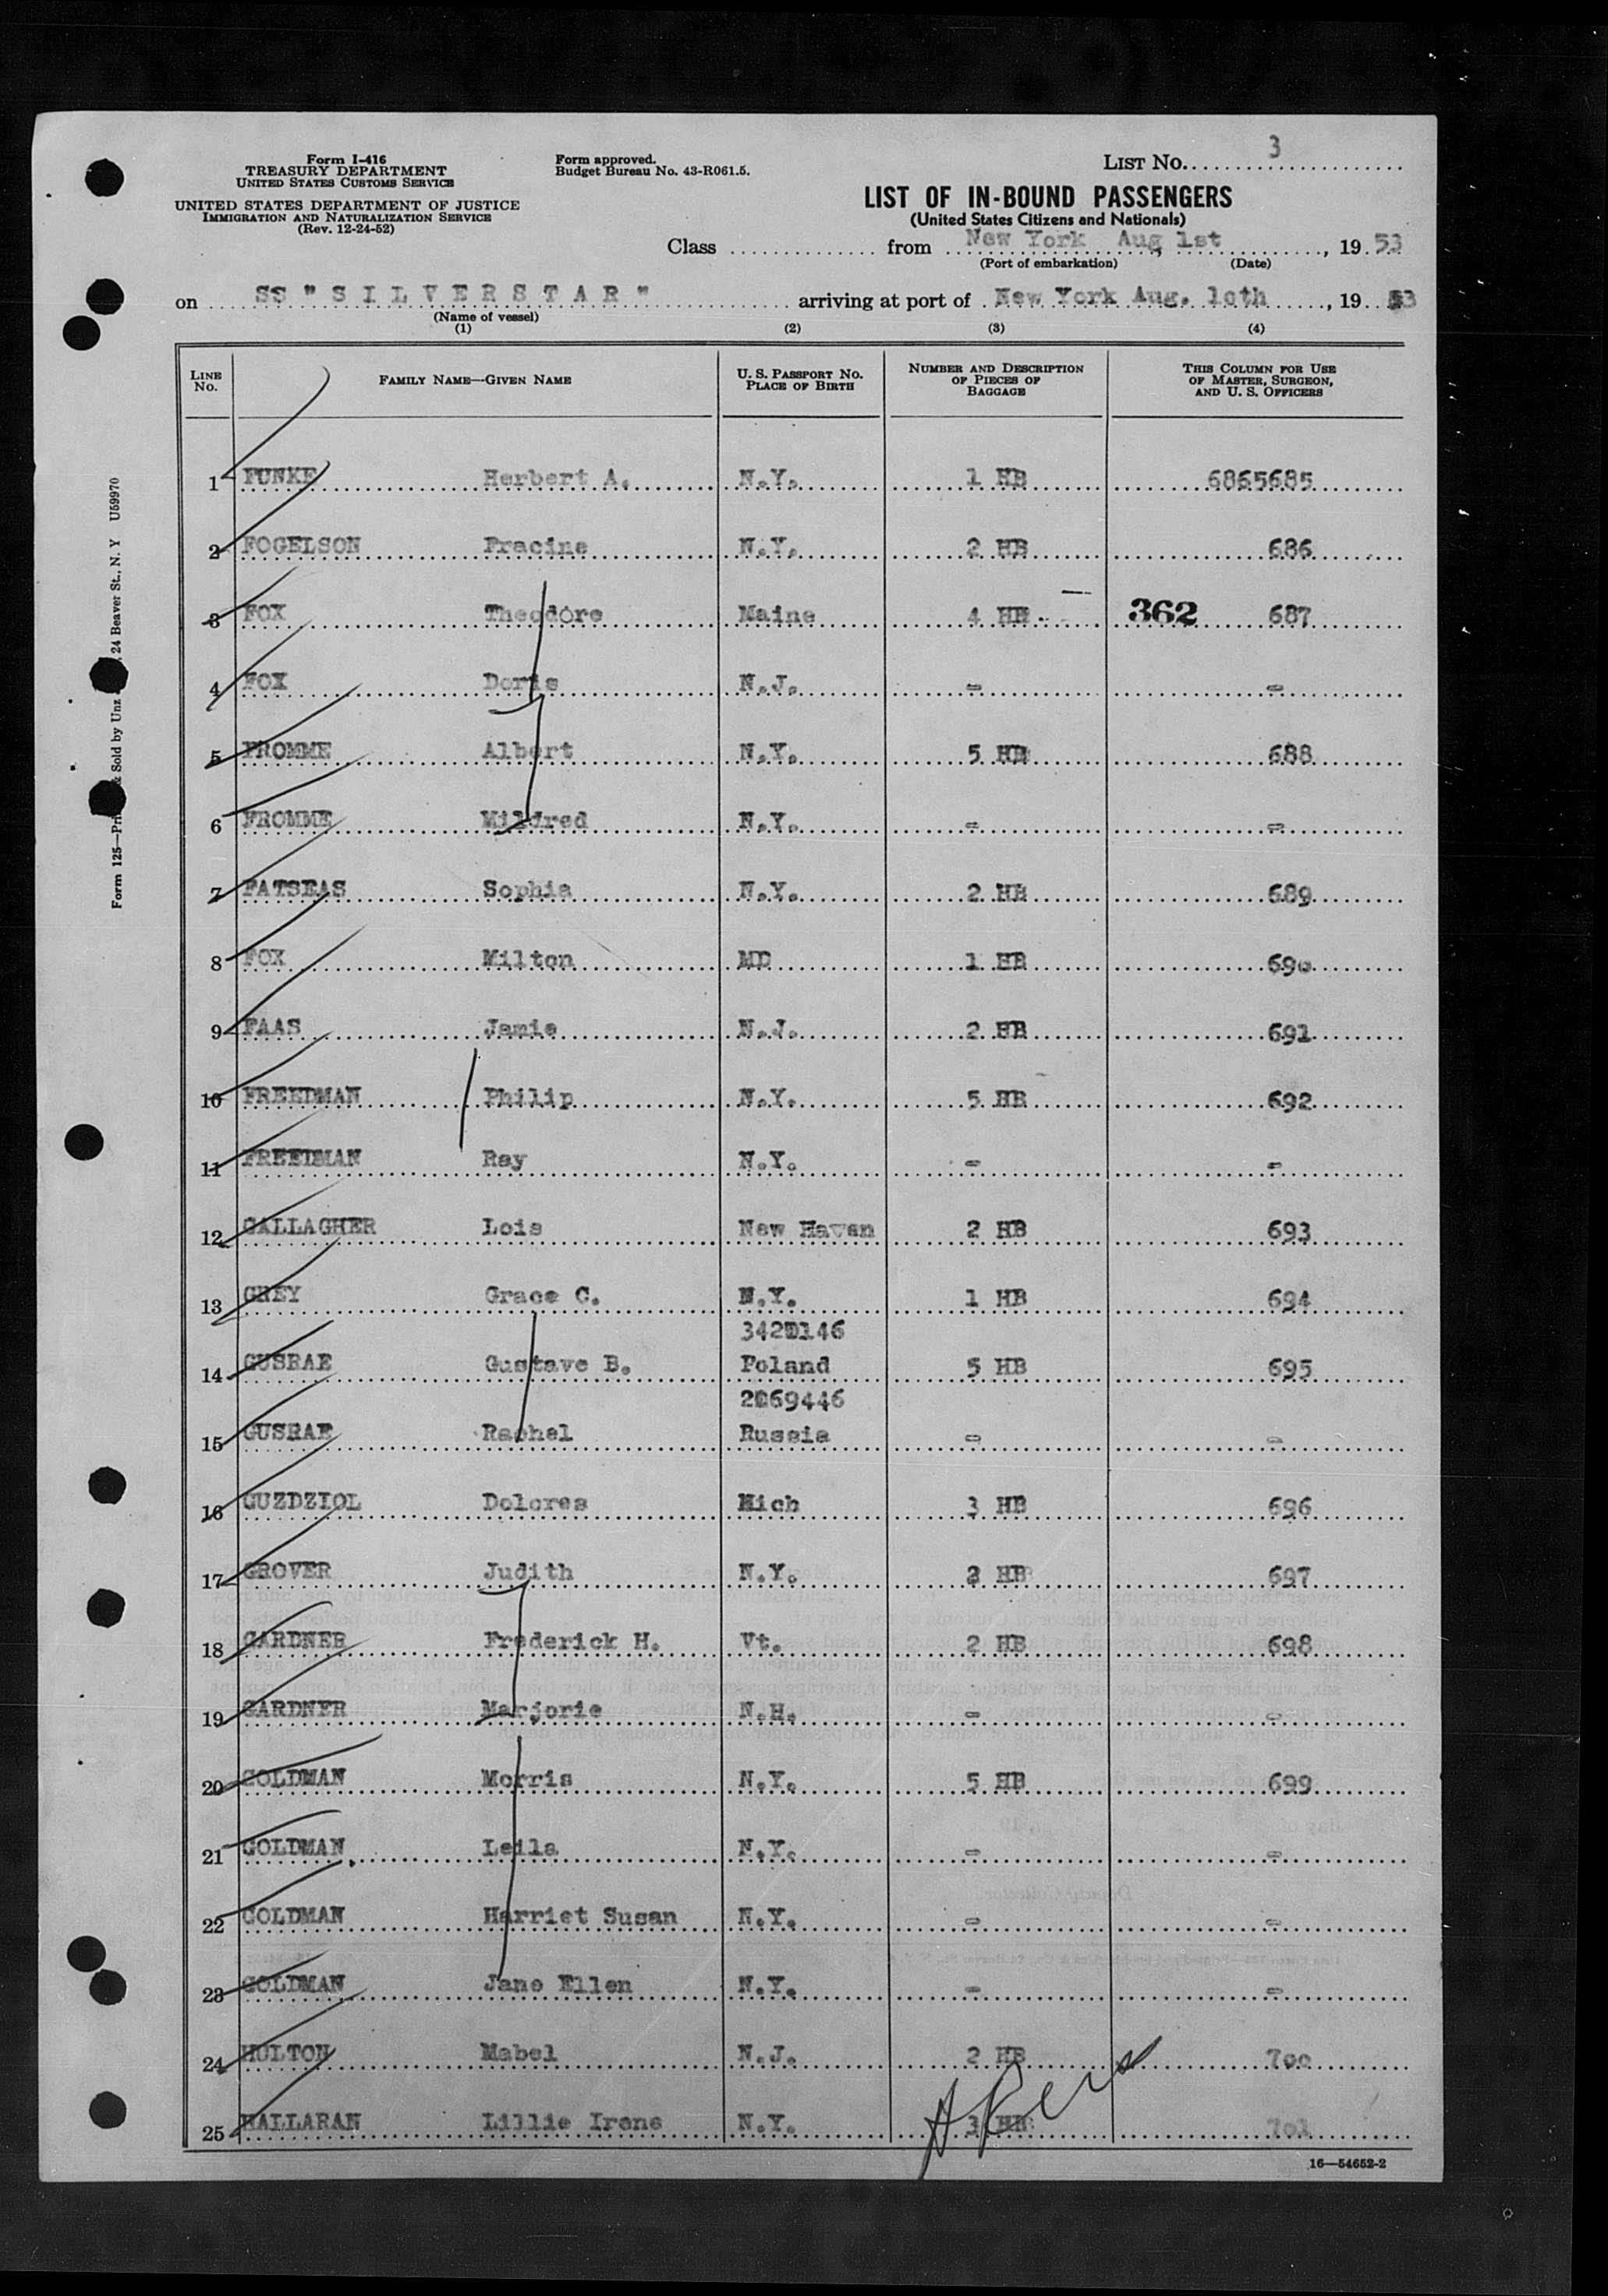 Form I-416
TREASURY DEPARTMENT
UNITED STATES CUSTOMS SERVICE
UNITED STATES DEPARTMENT OF JUSTICE
IMMIGRATION AND NATURALIZATION SERVICE
(Rev. 12-24-52)
Form approved.
Budget Bureau No. 43-R061.5.
LIST No. 3
LIST OF IN-BOUND PASSENGERS
(United States Citizens and Nationals)
Class from New York Aug 1st, 1953
(Port of embarkation) (Date)
on SS "SILVERSTAR" arriving at port of New York Aug. 10th, 1953
(Name of vessel)
(1) (2) (3) (4)
LINE No. FAMILY NAME—GIVEN NAME U. S. PASSPORT No. PLACE OF BIRTH NUMBER AND DESCRIPTION OF PIECES OF BAGGAGE THIS COLUMN FOR USE OF MASTER, SURGEON, AND U. S. OFFICERS
1 FUNKE Herbert A. N.Y. 1 HB 6865685
2 FOGELSON Fracine N.Y. 2 HB 686
3 FOX Theodore Maine 4 HB 362 687
4 FOX Doris N.J. - -
5 FROMME Albert N.Y. 5 HB 688
6 FROMME Mildred N.Y. - -
7 FATSEAS Sophia N.Y. 2 HB 689
8 FOX Milton MD 1 HB 690
9 FAAS Jamie N.J. 2 HB 691
10 FREEDMAN Philip N.Y. 5 HB 692
11 FREEDMAN Ray N.Y. - -
12 GALLAGHER Lois New Haven 2 HB 693
13 GREY Grace C. N.Y. 1 HB 694
14 GUSRAE Gustave B. Poland 5 HB 695
15 GUSRAE Rachel Russia - -
16 GUZDZIOL Dolores Mich 3 HB 696
17 GROVER Judith N.Y. 2 HB 697
18 GARDNER Frederick H. Vt. 2 HB 698
19 GARDNER Marjorie N.H. - -
20 GOLDMAN Morris N.Y. 5 HB 699
21 GOLDMAN Leila N.Y. - -
22 GOLDMAN Harriet Susan N.Y. - -
23 GOLDMAN Jane Ellen N.Y. - -
24 HULTON Mabel N.J. 2 HB 700
25 HALLARAN Lillie Irene N.Y. 3 HB 701
16—54652-2
24 Beaver St., N. Y U59970